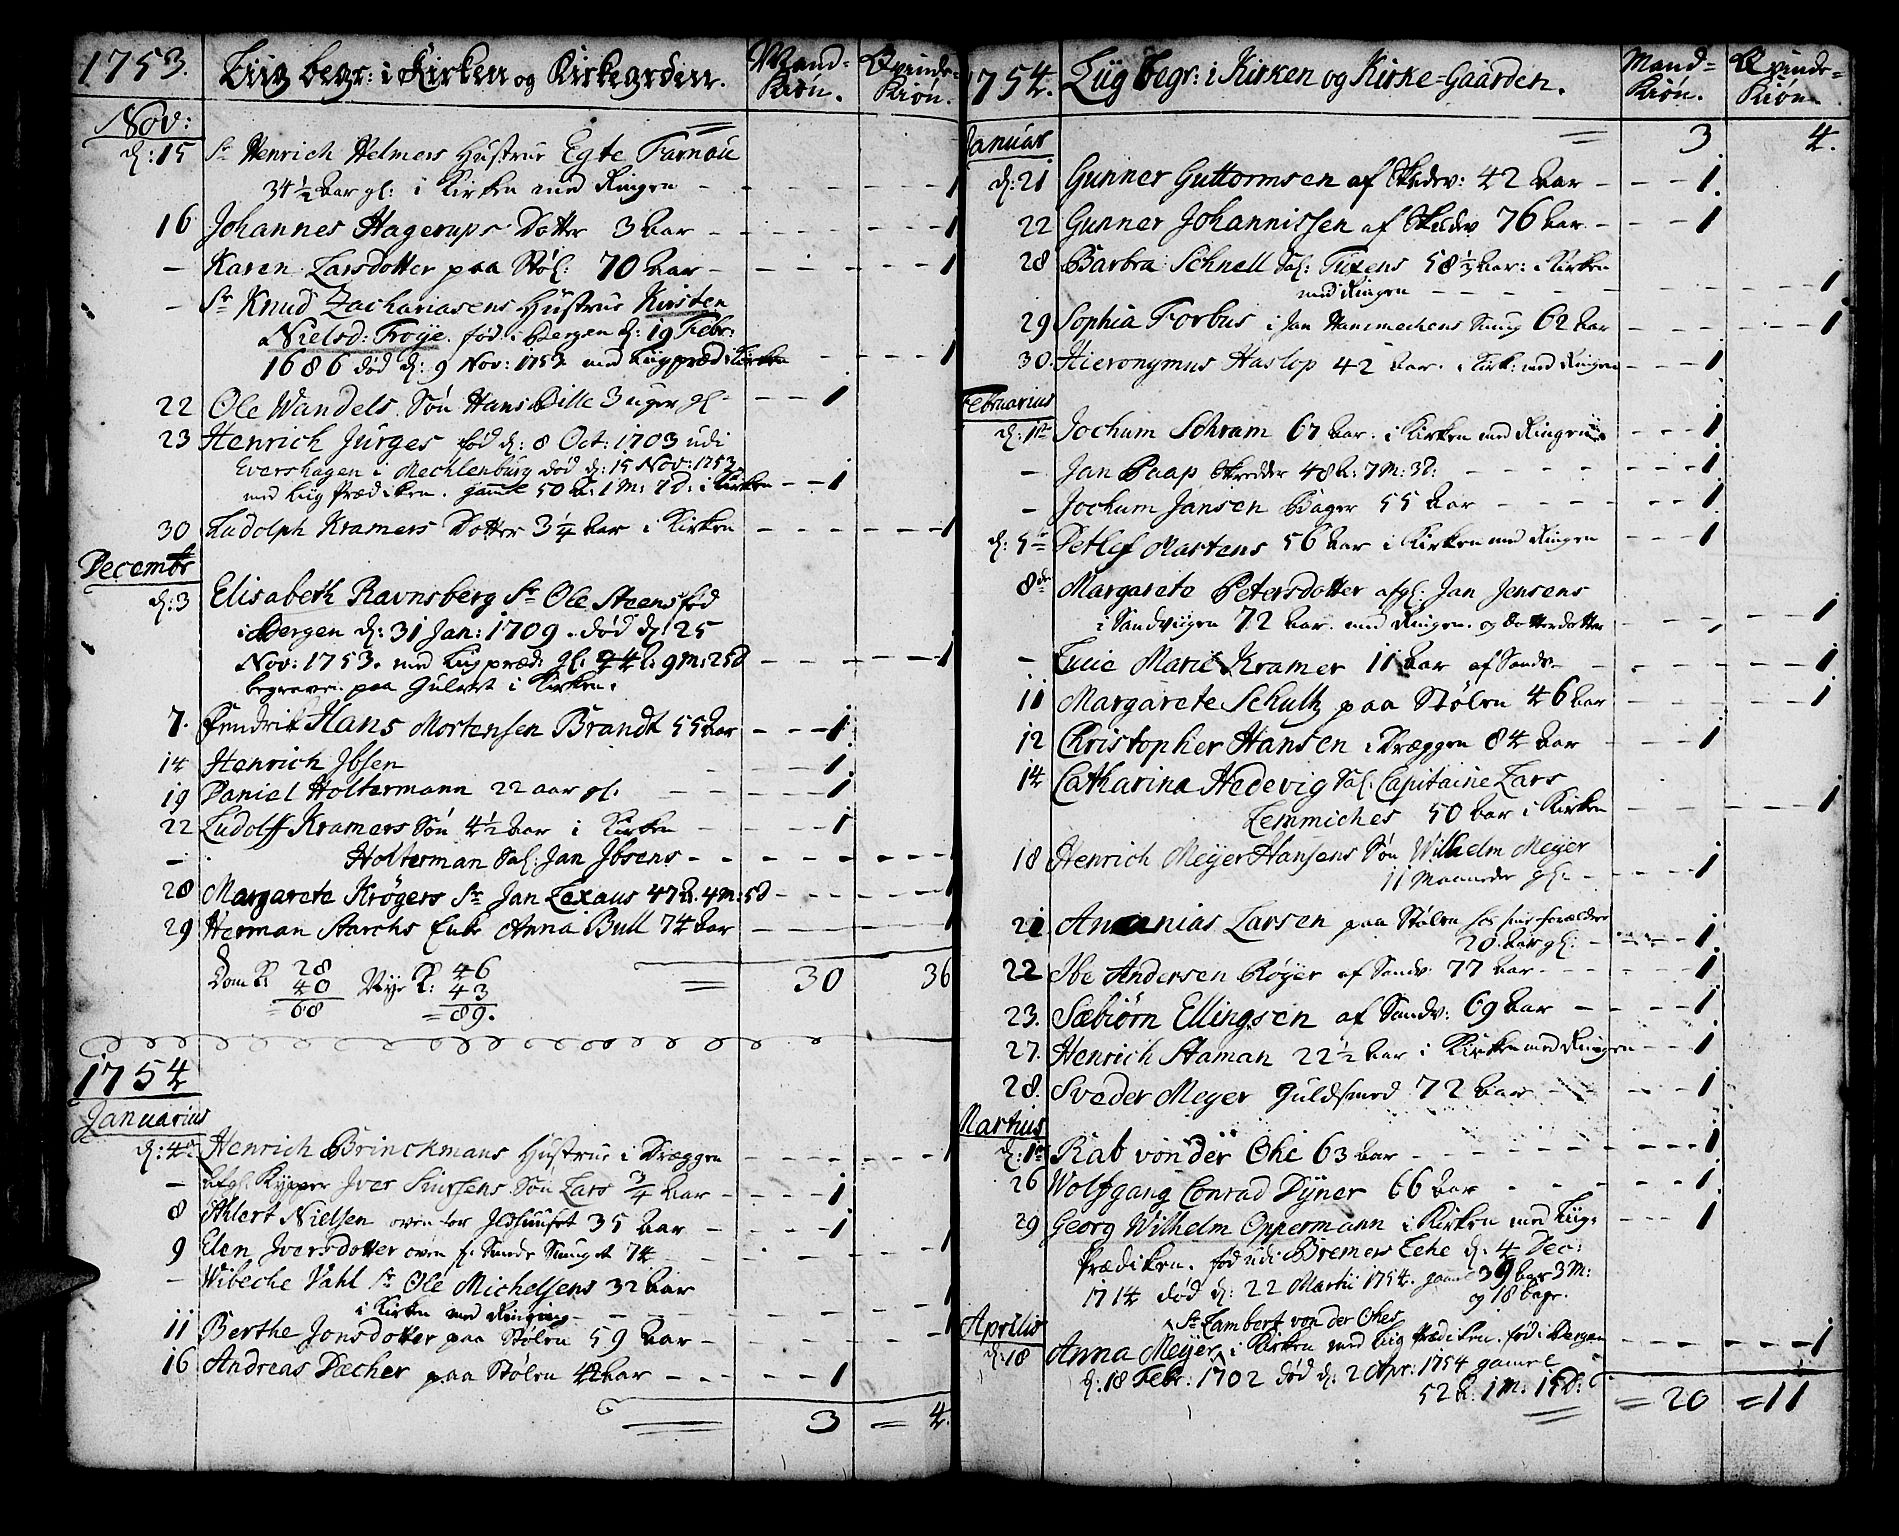 1753. Liig begr: i Kirken og Kirkegården. Mand-Kiön. Qvinde-Kiön.
Nov:
d: 15 Sr Henrich Helmers Hustrue Egte Farnau
34 1/2 Aar gl: i Kirken med Ringen - - - - 1
16 Johannes Hagerups Dotter 3 Aar - - - - 1
- Karen Larsdotter paa Støl: 70 Aar - - - - 1
- Sr Knud Zachariasens Hustrue Kirsten
Nielsd: Froÿe. fød i Bergen d: 19 Febr:
1686 død d: 9 Nov: 1753 med Liigpræd i Kirken - - - 1
22 Ole Wandels Søn Hans Bille 3 uger gl - - - 1
23 Henrich Jürges fød d: 8 Oct: 1703 udi
Evershagen i Mechlenburg død d: 15 Nov: 1753
med Liig Prædiken. gamle 50 A: 1 M: 7 D: i Kirken - - 1
30 Ludolph Kramers Dotter 3 1/4 Aar i Kirken - - - - 1
Decembr
d: 3 Elisabeth Ravnsberg Sr Ole Steens fød
i Bergen d: 31 Jan: 1709. død d: 25
Nov: 1753. med Liigpræd: gl: 44 A: 9 M: 25 D - - - - 1
begraven paa Gulvet i Kirken.
7. Hans Mortensen Brandt 55 Aar - - - 1
14 Henrich Jbsen - - - 1
19 Daniel Holtermann 22 aar gl. - - - 1
22 Ludolff Kramers Søn 4 1/2 Aar i Kirken - - - 1
- Holterman Sal: Jan Jbsens - - - - - 1
28 Margarete Krögers Sr Jan Lexaus 47 A. 4 M: 5 D - - - - 1
29 Herman Starchs Enke Anna Bull 74 Aar - - - - 1
Dom K: 28 Nye K: 46 = 30 36
40 43
= 68 = 89.
1754
Januarius
d: 4 Henrich Brinckmans Hustrue i Dræggen - - - - 1
- Afgl: Kypper Jver Siursens Søn Lars 3/4 Aar - - - 1
8 Ahlert Nielsen oven for 35 Aar - - - 1
9 Elen Jversdotter oven f: Smuget 74 - - - 1
- Wibeche Vahl Sr Ole Michelsens 32 Aar
i Kirken med Ringing - - - - 1
11 Berthe Jonsdotter paa Stølen 59 Aar - - - - 1
16 Andreas Decher paa Stølen 42 Aar - - - 1
= 3 = 4.
1754. Liig begr: i Kirken og Kirke-Gaarden. Mand-Kiön. Qvinde-Kiön.
Januar = 3 4.
d: 21 Gunner Guttormsen af Skudev: 42 Aar - - - 1.
22 Gunner Johannissen af Skudev 76 Aar - - - 1
28 Barbra Schnell Sal: Tuxens 58 1/3 Aar: i Kirken
med Ringen - - - - - 1
29 Sophia Forbus i Jan Smug 62 Aar - - - - 1
30. Hieronymus Haslop 42 Aar. i Kirk: med Ringen - - - 1
Februarius
d: 1te Jochum Schram 67 Aar. i Kirken med Ringen - - - 1
- Jan Paap Skredder 48 A: 7 M: 3 D: - - - 1
- Jochum Jansen Bager 55 Aar - - - 1
d: 5te Detlef Martens 56 Aar i Kirken med Ringen - - - 1
8de Margarete Petersdotter afgl: Jan Jensens
i Sandvigen 72 Aar. med Ringen. og Dotterdotter - - - 1
- Lucie Marie Kramer 11 Aar af Sandv - - - - 1
11 Margarete Schultz paa Stølen 46 Aar - - - - 1
12 Christopher Hansen i Dræggen 84 Aar - - - 1
14 Catharina Hedevig Sal: Capitaine Lars
Lemmiches 50 Aar i Kirken - - - - 1
18 Henrich Meÿer Hansens Søn Wilhelm Meÿer
11 Maaneder gl. - - - 1
21 Ananias Larsen paa Stølen hos sine Forældre
20 Aar gl: - - - 1
22 Ibe Andersen Røÿer af Sandv: 77 Aar - - - 1
23. Sæbiørn Ellingsen af Sandv: 69 Aar - - - 1
27. Henrich Staman 22 1/2 Aar i Kirken med Ringen - - - 1
28. Sveder Meyer Guldsmed 72 Aar - - - 1
Martius
d: 1te Rab von der Ohe 63 Aar - - - 1
26 Wolfgang Conrad Dÿner 66 Aar - - - 1
29 Georg Wilhelm Oppermann i Kirken med Liig- - - - 1
Prædiken. fød udi Bremers Lehe d: 4 Dec:
1714 død d: 22 Martii 1754. gaml 39 Aar 3 M:
og 18 Dage.
Aprilis ^ Sr Lambert von der Ohes
d: 18 Anna Meÿer ^ i Kirken med Liig Prædiken. fød i Bergen - - - - 1
d: 18 Febr: 1702 død d: 2 Apr: 1754 gamel
52 A: 1 M: 15 D:
= 20 = 11